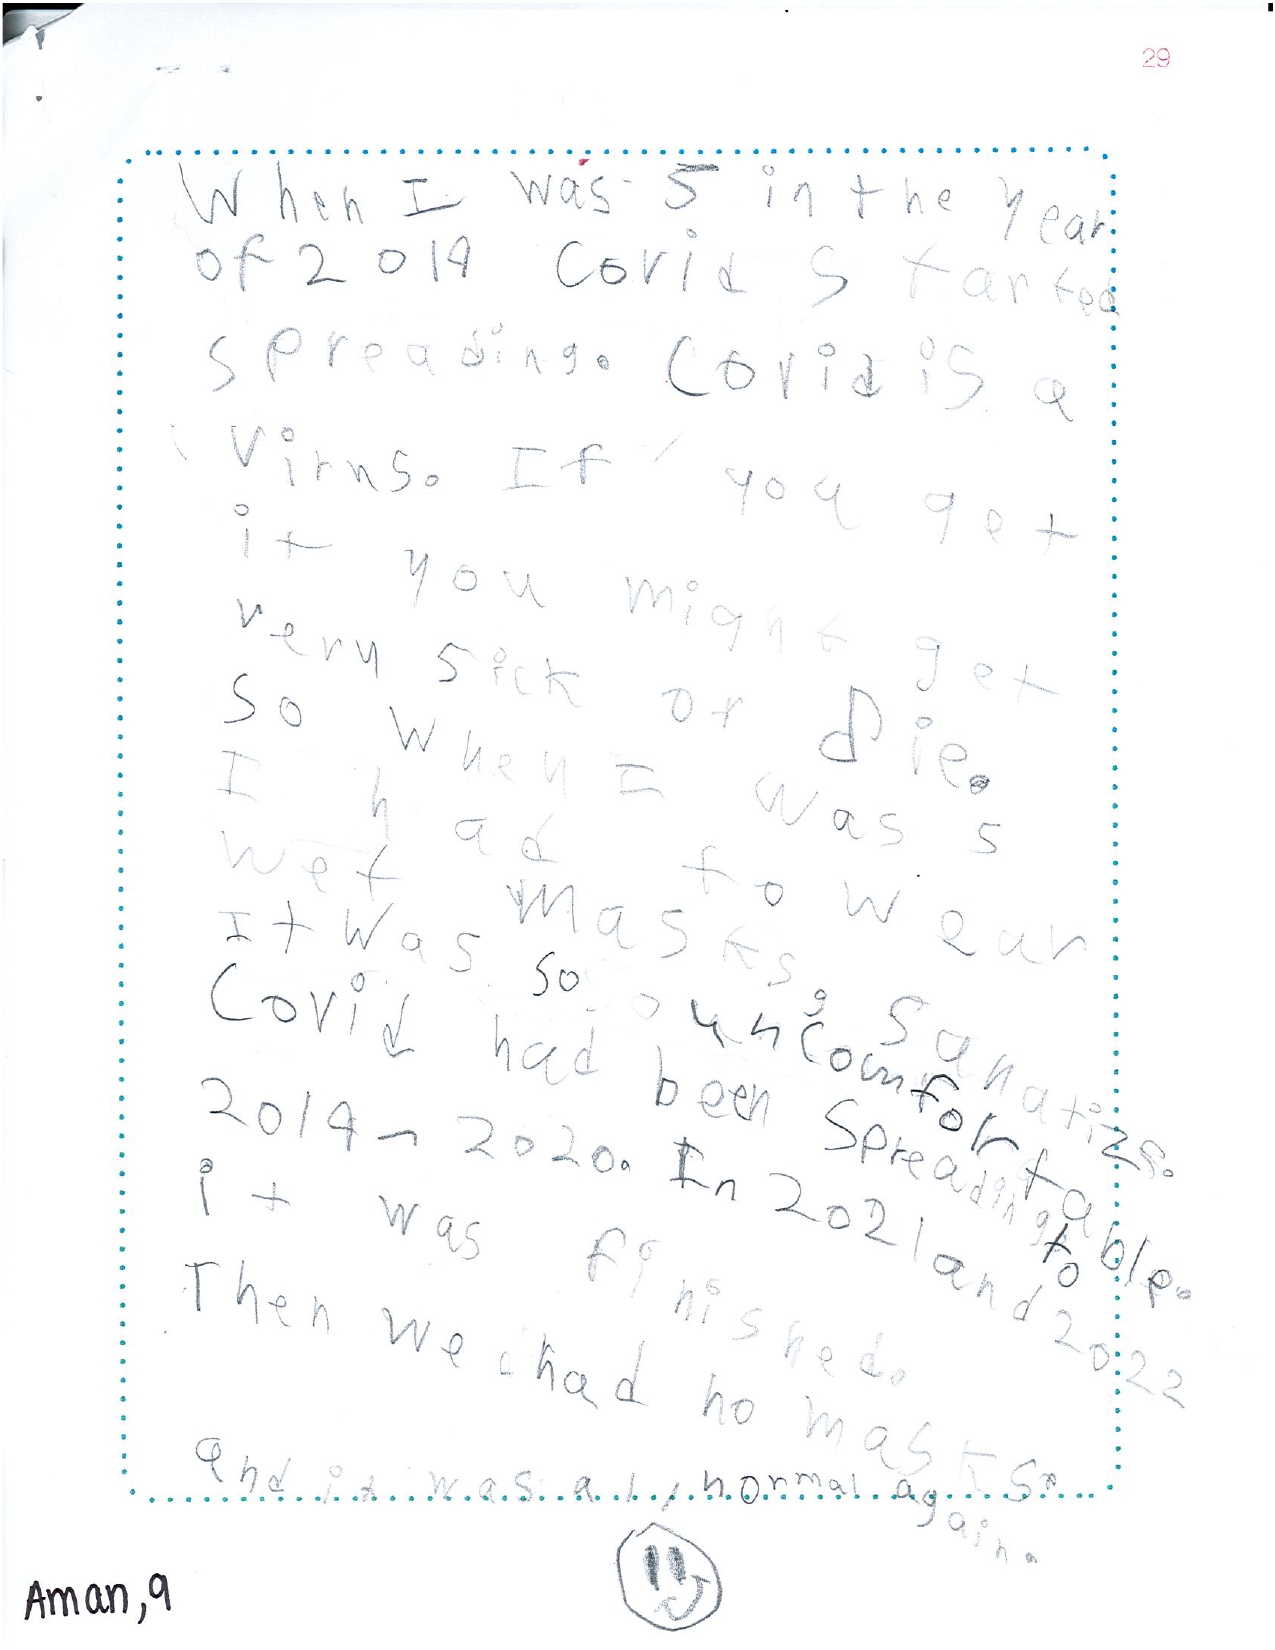 29
When I was 5 in the year
of 2019 Covid started
spreading. Covid is a
Virus. If you get
it you might get
very sick or die.
So when I was 5
I had to wear
wet masks, Sanatize.
It was so uncomfortable.
Covid had been spreading to
2019-2020. In 2021 and 2022
it was finished.
Then we had no masks.
and it was all normal again.
Aman, 9